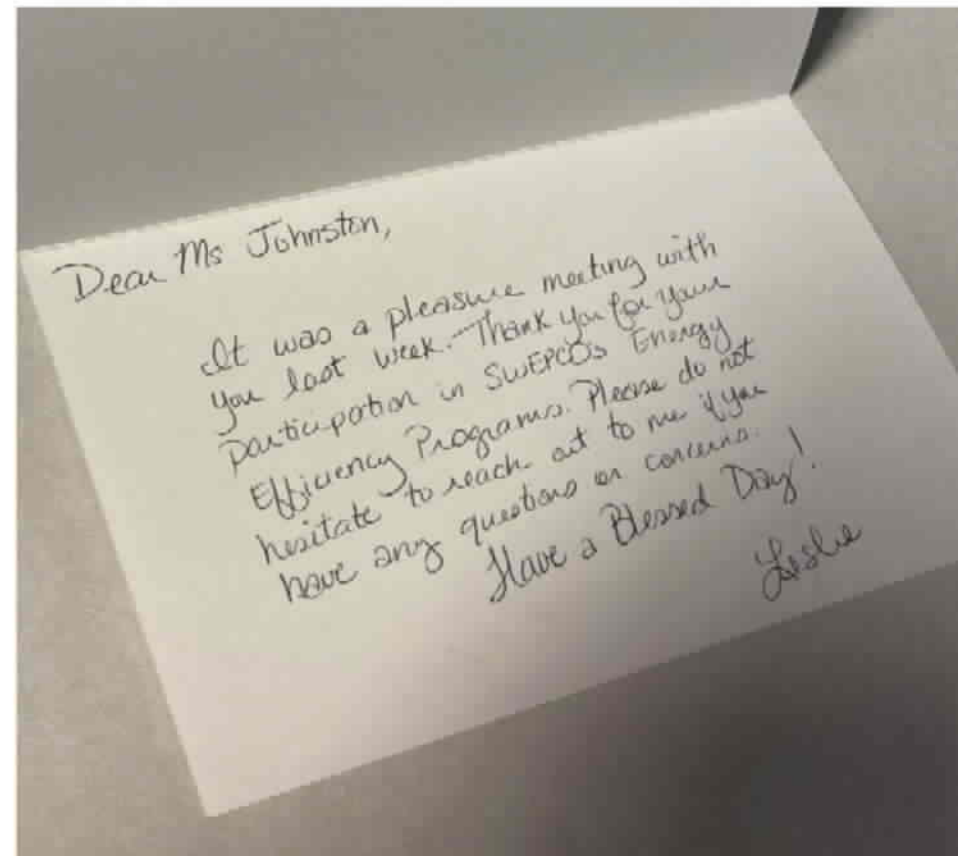 Dear Ms Johnston,
It was a pleasure meeting with
you last week. Thank you for your
participation in SWEPCO's Energy
Efficiency Programs. Please do not
hesitate to reach out to me if you
have any questions or concerns.
Have a Blessed Day!
Leslie